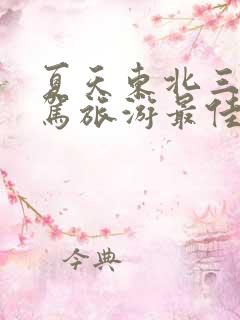 夏天东北三
驾旅游最佳
今典